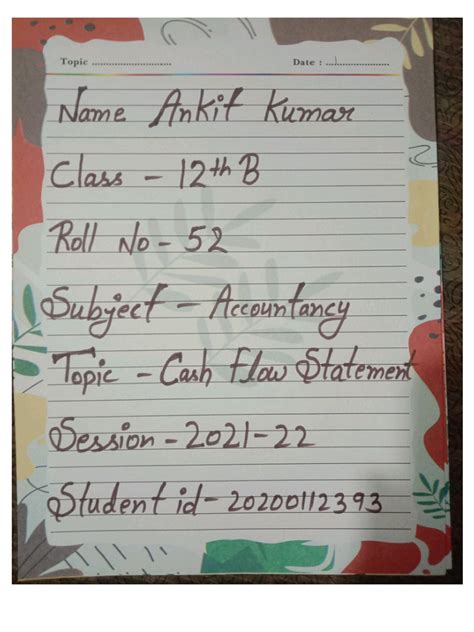 Topic ........................... Date : ......................
Name Ankit Kumar
Class - 12th B
Roll No - 52
Subject - Accountancy
Topic - Cash Flow Statement
Session - 2021-22
Student id - 20200112393